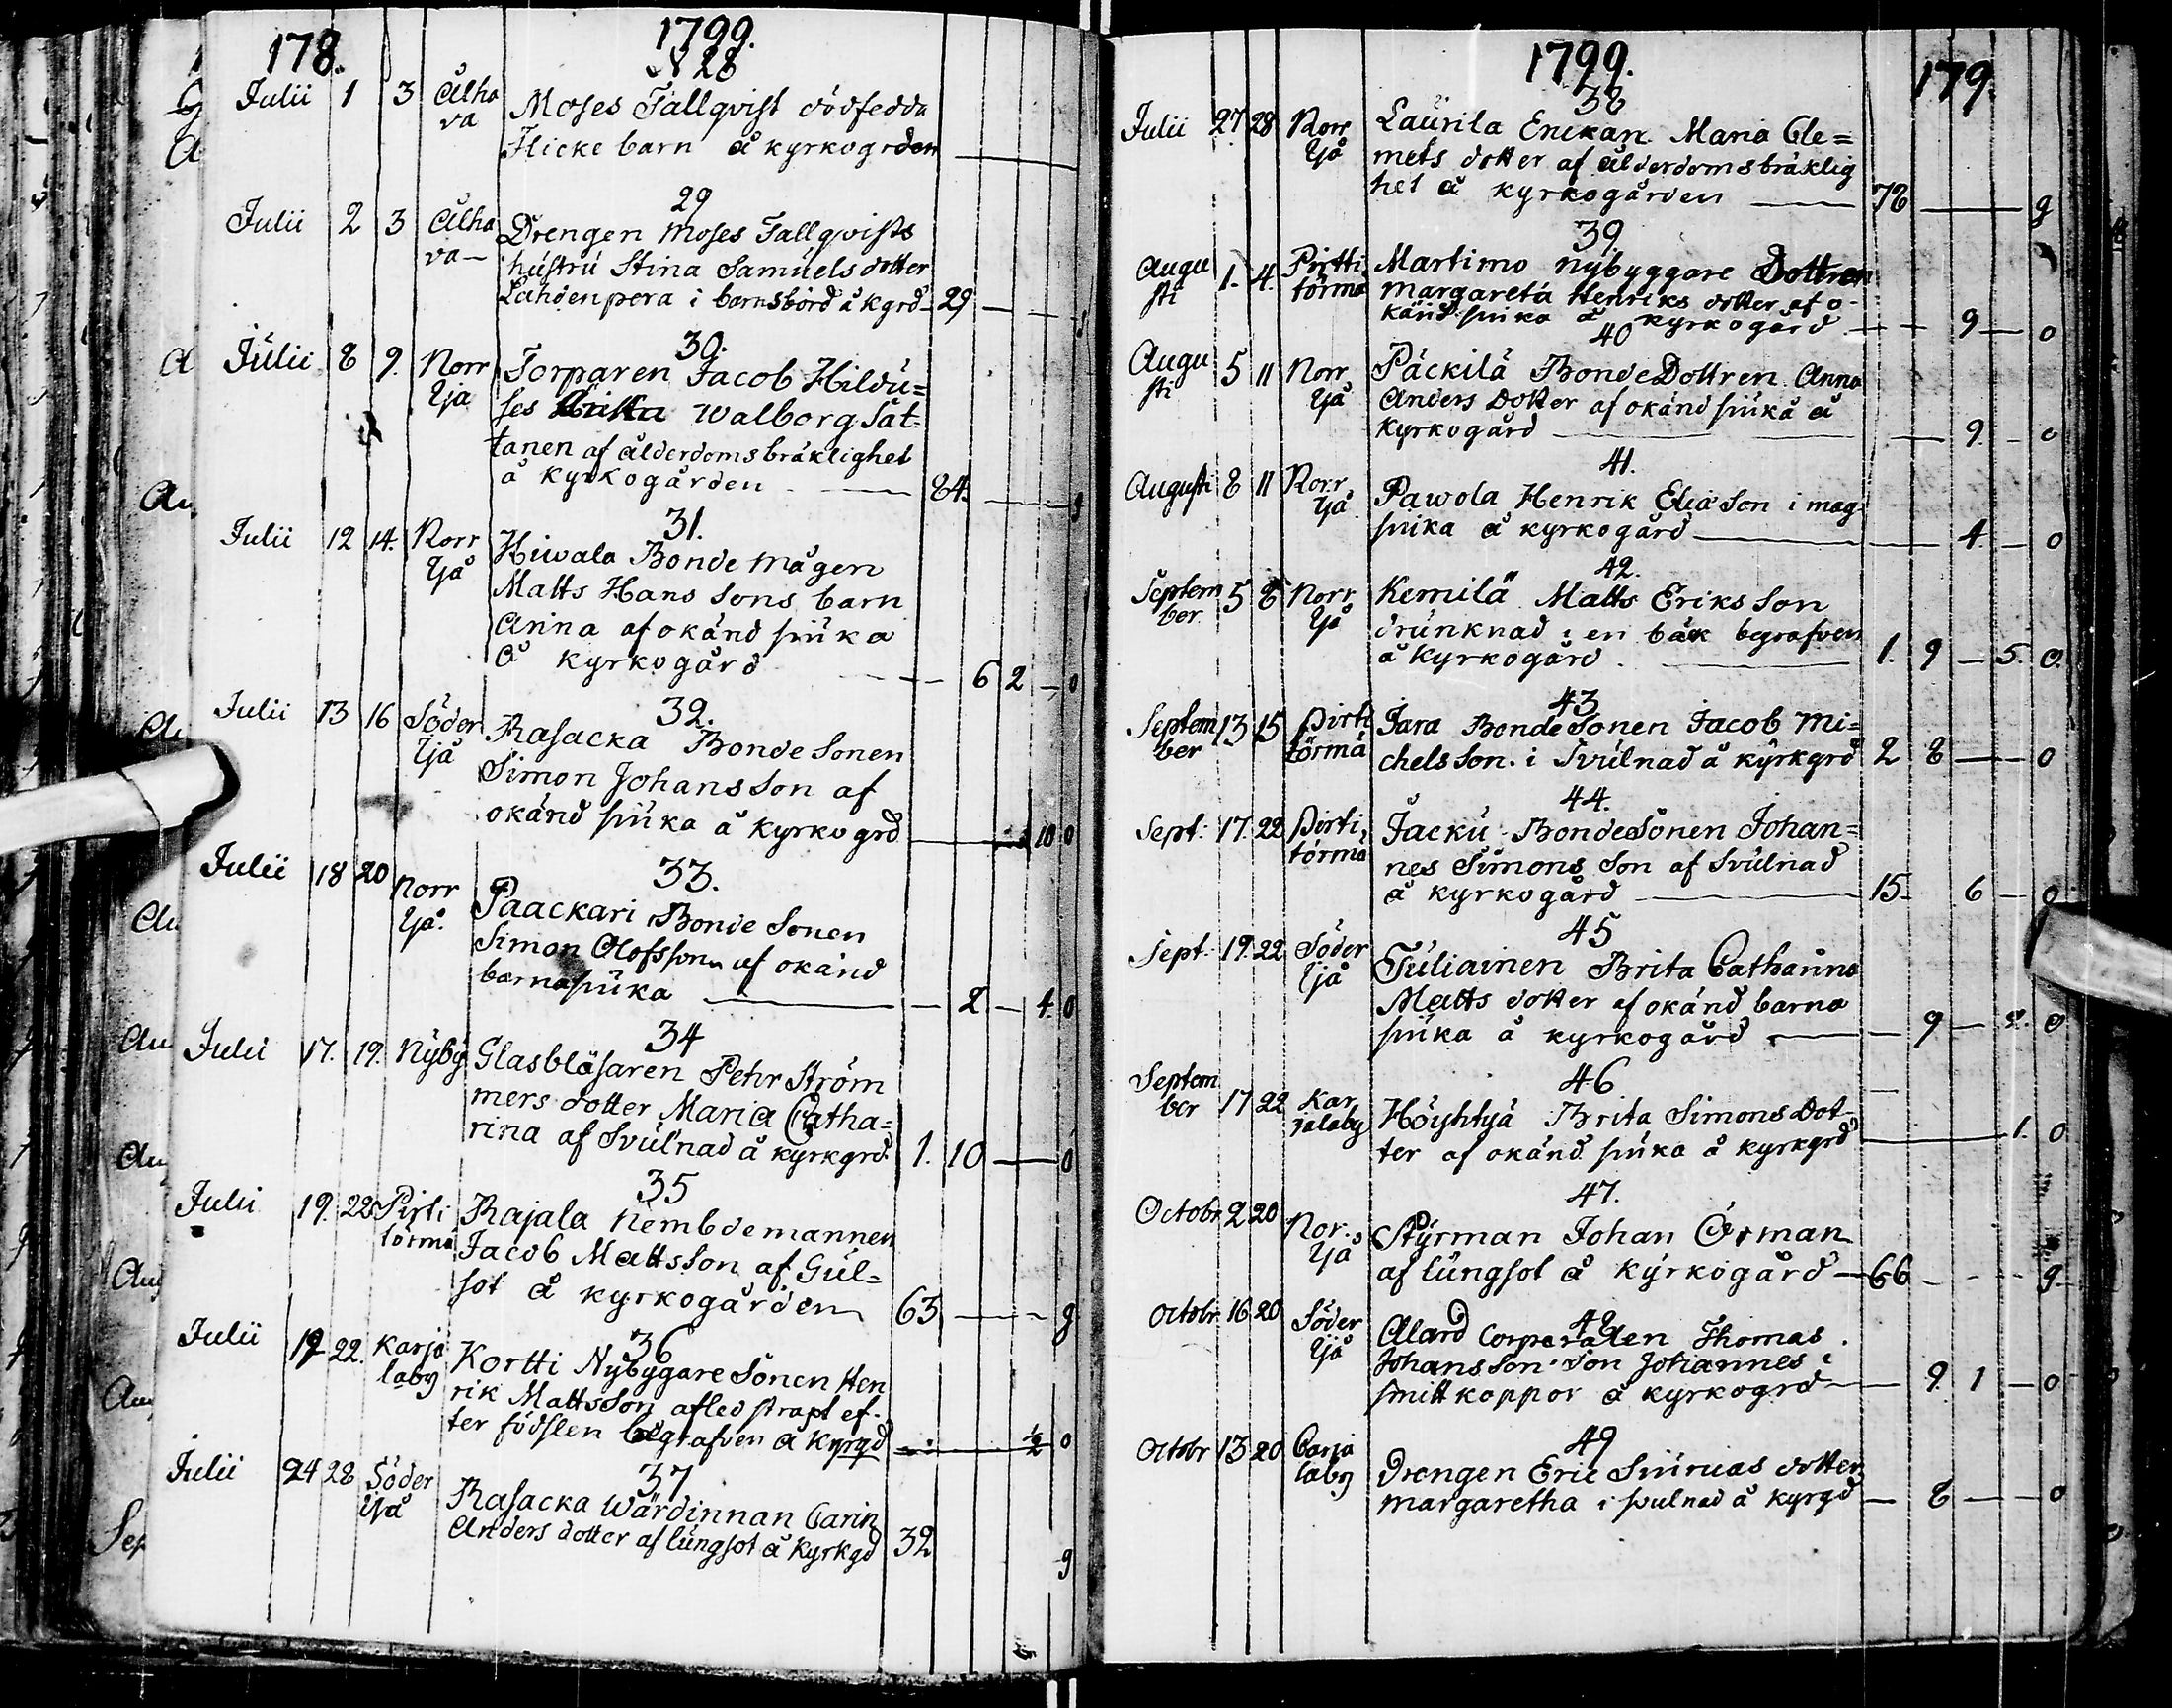 178. 1799.
N 28
Julii 1 3 Alha Moses Fallqvist dödfedda
va Flicke barn å kyrkogrden
29
Julii 2 3 Alha Drengen Moses Fallqvists
va hustru Stina Samuels dotter
Lahdenpera i barnsbörd å kgrd 29
30.
Julii 8 9. Norr Torparen Jacob Hildu=
Ijå ses Walborg Sat=
tanen af ålderdomsbräklighet
å kyrkogården 84. g
31.
Julii 12 14. Norr Hiwala Bonde mågen
Ijå Matts Hans Sons barn
Anna af okänd siuka
å kyrkogård 6 2 0
32.
Julii 13 16 Söder Rasacka Bonde Sonen
Ijå Simon Johansson af
okänd siuka å kyrkogrd 10 0
33.
Julii 18 20 Norr Paackari Bonde Sonen
Ijå. Simon Olofsson af okänd
barnasiuka 2 4. 0
34
Julii 17. 19. Nyby Glasblåsaren Pehr Ström
mers dotter Maria Catha=
rina af Svulnad å kyrkgrd. 1. 10 0
35
Julii 19. 22 Pirti Rajala Nembdemannen
törmä Jacob Mattsson af Gul=
sot å kyrkogården 63 g
36
Julii 19 22. Karja Kortti Nybyggare Sonen Hen
laby rik Mattsson afled strapt ef=
ter födslen begrafven å Kyrgd ½ 0
37
Julii 24 28 Söder Rasacka Wärdinnan Carin
Ijå Anders dotter af lungsot å Kyrkgd 32 g
1799. 179.
38
Julii 27 28 Norr Laurila Enckan Maria Cle=
Ijå mets dotter af ålderdomsbräklig
het å kyrkogården 78 g
39
Augu 1. 4. Pirtti Martimo nybyggare Dottren
sti törmä Margareta Henriks dotter af o=
känd siuka å kyrkogård 9 0
40
Augu 5 11 Norr Päckilä Bonde Dottren Anna
sti Ijå Anders Dotter af okänd siuka å
kyrkogård 9. 0
41.
Augusti 8 11 Norr Pawola Henrik Elia Son i mag
Ijå siuka å kyrkogård 4. 0
42.
Septem 5 8 Norr Kemilä Matts Eriks Son
ber Ijå drunknad i en bäk begrafven
å kyrkogård 1. 9 5. 0
43
Septem 13 15 Pirti Jara Bonde Sonen Jacob Mi=
ber törmä chels Son i Svulnad å kyrkgrd 2 8 0
44.
Sept: 17. 22 Pirti Jacku Bonde Sonen Johan=
törmä nes Simons Son af Svulnad
å kyrkogård 15 6 0
45
Sept. 19. 22 Söder Tuliainen Brita Catharina
Ijå Matts dotter af okänd barna
siuka å kyrkogård 9 2. 0
46
Septem
ber 17 22 Kar Höyhtyä Brita Simons Dot=
jalaby ter af okänd siuka å kyrkgrd 1. 0
47.
Octobr. 2 20 Nor. Styrman Johan Örman
Ijå af lungsot å kyrkogård 66 g
48
Octobr. 16 20 Söder Alard Corporalen Thomas
Ijå Johansson Son Johannes i
smitt koppor å kyrkogrd 9. 1 0
49
Octobr 13 20 Carja Drengen Eric Siuruas dotter
laby margaretha i svulnad å Kyrgd 8 0